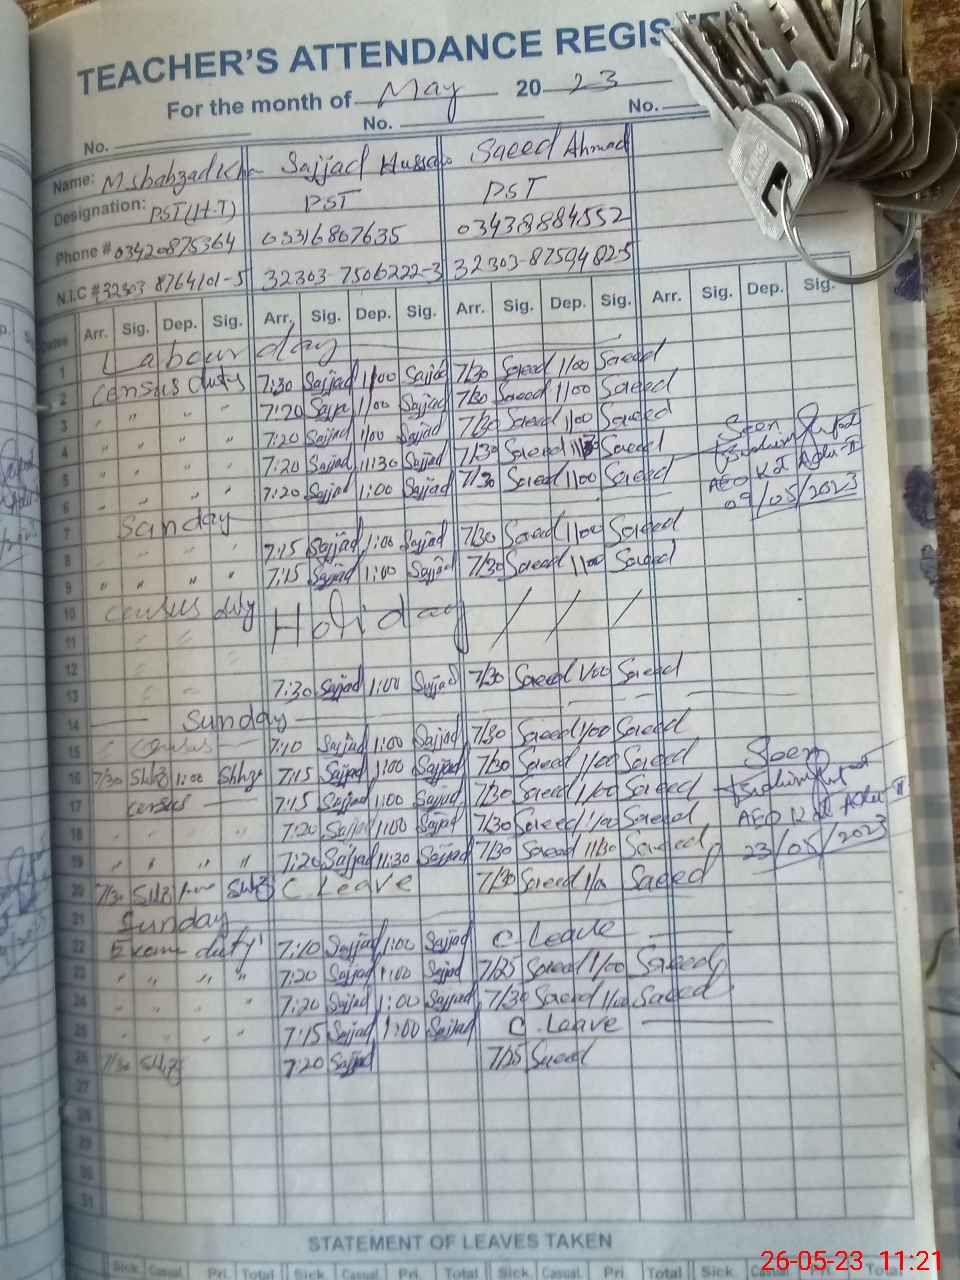 TEACHER'S ATTENDANCE REGISTE
For the month of May 20 23
No. No. No.
Name: M.shahzad Kha Sajjad Hussain Saeed Ahmad
Designation: PST(H-T) PST PST
Phone # 03420875364 03316807635 03438884552
N.I.C # 32303 8764101-5 32303-7506222-3 32303-8759402-5
Dates Arr. Sig. Dep. Sig. Arr. Sig. Dep. Sig. Arr. Sig. Dep. Sig. Arr. Sig. Dep. Sig.
1 Labour day
2 Census duty 7:30 Sajjad 1:00 Sajjad 7/30 Saeed 1/00 Saeed
3 " " " 7:20 1/00 Sajjad 7/30 Saeed 1/00 Saeed
4 " " " 7:20 Sajjad 1/00 Sajjad 7/30 Saeed 1/00 Saeed
5 " " " 7:20 Sajjad 11:30 Sajjad 7/30 Saeed Saeed
6 " " " 7:20 Sajjad 1:00 Sajjad 7/30 Saeed 1/00 Saeed
Seen
AEO
09/05/2023
7 Sunday
8 " " " 7:15 Sajjad 1:00 Sajjad 7/30 Saeed 1/00 Saeed
9 " " " " 7:15 Sajjad 1:00 Sajjad 7/30 Saeed 1/00 Saeed
10 Census duty Holiday / / /
11 " "
12 " " "
13 " " 7:30 Sajjad 1:00 Sajjad 7/30 Saeed 1/00 Saeed
14 Sunday
15 Census 7:10 Sajjad 1:00 Sajjad 7/30 Saeed 1/00 Saeed
16 7/30 1:00 7:15 Sajjad 1:00 Sajjad 7/30 Saeed 1/00 Saeed
17 census 7:15 Sajjad 1:00 Sajjad 7/30 Saeed 1/00 Saeed
18 " " " " 7:20 Sajjad 1:00 Sajjad 7/30 Saeed 1/00 Saeed
19 " " " " 7:20 Sajjad 11:30 Sajjad 7/30 Saeed 11/30 Saeed
Seen
AEO
23/05/2023
20 7/30 C. Leave 7/30 Saeed Saeed
21 Sunday
22 Exam duty 7:10 Sajjad 1:00 Sajjad C. Leave
23 " " " " 7:20 Sajjad 1:00 Sajjad 7/25 Saeed 1/00 Saeed
24 " " " " 7:20 Sajjad 1:00 Sajjad 7/30 Saeed 1/00 Saeed
25 " " " " 7:15 Sajjad 1:00 Sajjad C. Leave
26 7/30 7:20 Sajjad 7/25 Saeed
27
28
29
30
31
STATEMENT OF LEAVES TAKEN
Sick. Casual. Pri. Total Sick. Casual. Pri. Total Sick. Casual. Pri. Total Sick. Casual. Pri. Total
26-05-23 11:21